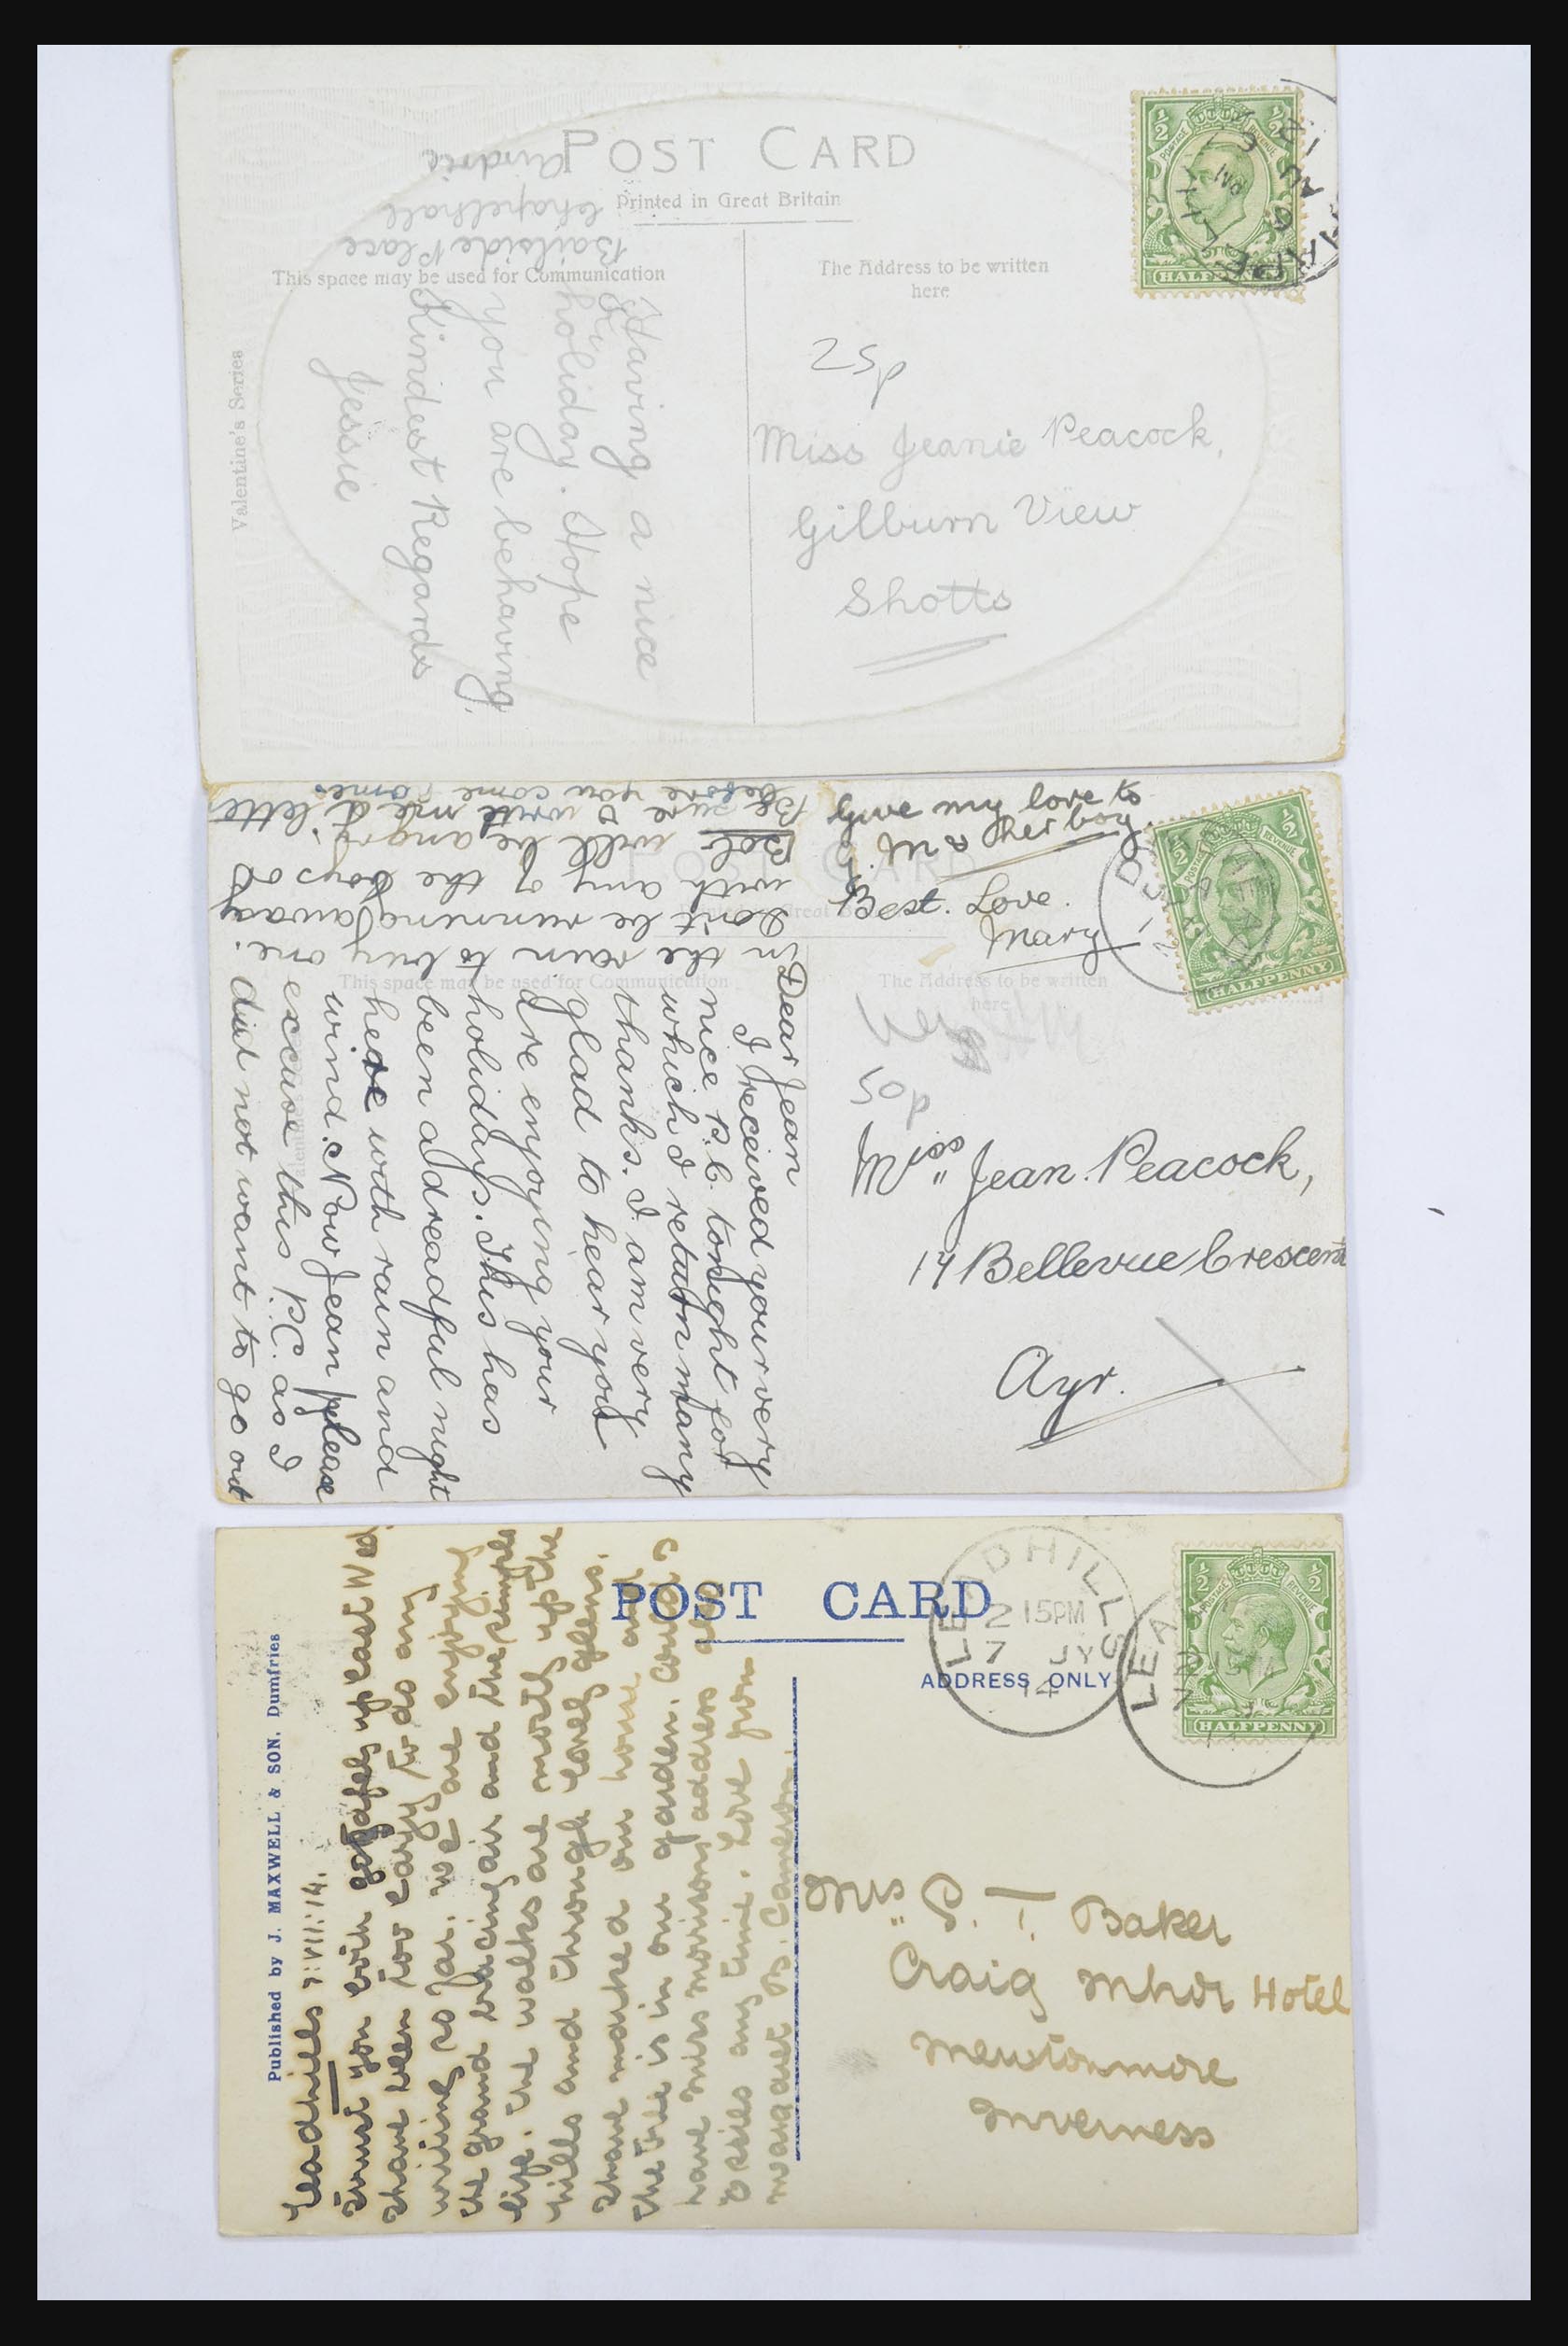 POST CARD
Printed in Great Britain
This space may be used for Communication
The Address to be written
here
Valentine's Series
Bailside Place
Chapelhall
Airdrie
Having a nice
holiday. Hope
you are behaving.
Kindest Regards
Jessie
25p
Miss Jeanie Peacock,
Gilburn View
Shotts
HALFPENNY
POST CARD
This space may be used for Communication
The Address to be written
here
Dear Jean
I received your very
nice P.C. tonight for
which I return many
thanks. I am very
glad to hear you
are enjoying your
holidays. This has
been a dreadful night
here with rain and
wind. Now Jean please
excuse this P.C. as I
did not want to go out
in the rain to buy one.
Don't be running away
with any of the boys as
Bob will be angry.
Be sure & write me a letter
before you come home.
Give my love to
her boy.
Best Love.
Mary
50p
Miss Jean Peacock,
14 Bellevue Crescent
Ayr.
HALFPENNY
POST CARD
ADDRESS ONLY
Published by J. MAXWELL & SON, Dumfries
LEADHILLS
2 15PM
7 JY
14
HALFPENNY
Leadhills 7:VII:14.
Trust you both got safely up last Wed.
I have been too lazy to do any
writing so far. We are enjoying
the grand bracing air and the simple
life. The walks are mostly up the
hills and through lovely glens.
I have marked our house and
the tree is in our garden. Could I
have Miss Morison's address and
Elsie's any time. Love from
Margaret B. Cameron.
Mrs P. T. Baker
Craig Mhor Hotel
Newtonmore
Inverness